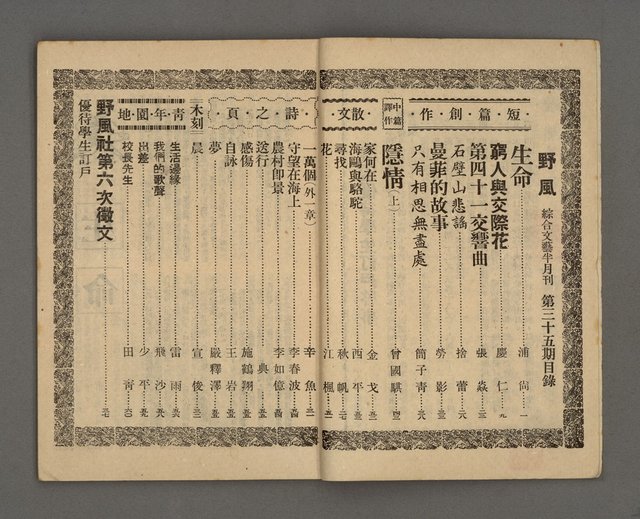 野風 綜合文藝半月刊 第三十五期目錄
·短·篇·創·作·
生命 浦尚 一
窮人與交際花 慶仁 九
第四十一交響曲 張焱
石壁山悲謠 捨蕾
曼菲的故事 勞影
只有相思無盡處 簡子靑
中篇譯作
隱情(上) 曾國騏
散文
家何在 金戈
海鷗與駱駝 西平
尋找 秋帆
花 江楓
·詩·之·頁·
一萬個(外一章) 辛魚
守望在海上 李春波
農村即景 李如億
送行 典
感傷 施鶴翔
自詠 王岩
夢 嚴釋澤
木刻
晨 宣俊
靑·年·園·地
生活邊緣 雷雨
我們的歌聲 飛沙
出差 少平
校長先生 田靑
野風社第六次徵文
優待學生訂戶